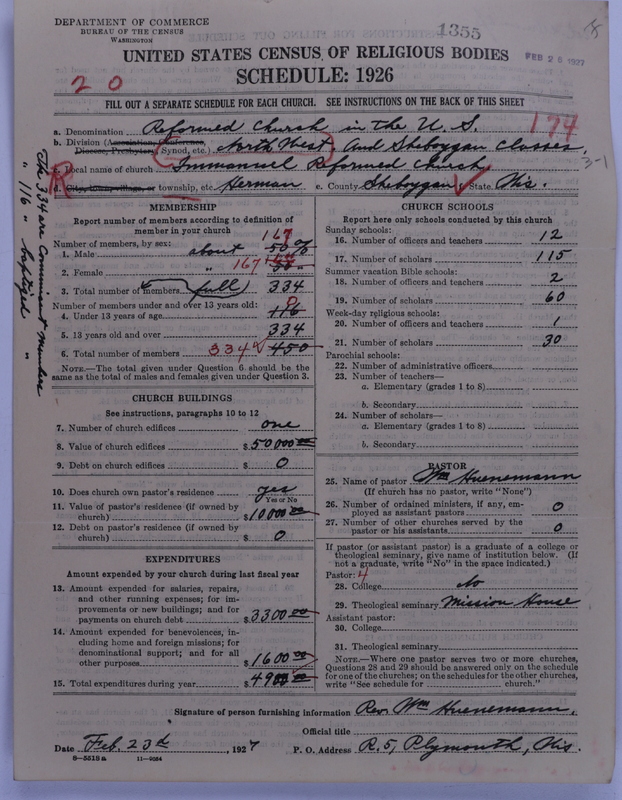 DEPARTMENT OF COMMERCE
BUREAU OF THE CENSUS
WASHINGTON
1355
FEB 26 1927
UNITED STATES CENSUS OF RELIGIOUS BODIES
SCHEDULE: 1926
2 0
FILL OUT A SEPARATE SCHEDULE FOR EACH CHURCH. SEE INSTRUCTIONS ON THE BACK OF THIS SHEET
174
a. Denomination Reformed Church in the U. S.
b. Division (Association, Conference, Diocese, Presbytery, Synod, etc.) North West, and Sheboygan Classes,
3-1
c. Local name of church Immanuel Reformed Church
R
d. City, town, village, or township, etc. Herman e. County Sheboygan State Wis.
The 334 are Communicant members
" 116 " baptized "
MEMBERSHIP
Report number of members according to definition of member in your church
Number of members, by sex:
167
1. Male about 50 %
2. Female " 167 50 "
3. Total number of members (full) 334
Number of members under and over 13 years old:
0
4. Under 13 years of age 116
5. 13 years old and over 334
6. Total number of members 334 450
NOTE.—The total given under Question 6 should be the same as the total of males and females given under Question 3.
CHURCH BUILDINGS
See instructions, paragraphs 10 to 12
7. Number of church edifices one
8. Value of church edifices $50000 00
9. Debt on church edifices $ 0
10. Does church own pastor's residence yes
Yes or No
11. Value of pastor's residence (if owned by church) $10000 00
12. Debt on pastor's residence (if owned by church) $ 0
EXPENDITURES
Amount expended by your church during last fiscal year
13. Amount expended for salaries, repairs, and other running expenses; for improvements or new buildings; and for payments on church debt $3300 00
14. Amount expended for benevolences, including home and foreign missions; for denominational support; and for all other purposes $1600 00
15. Total expenditures during year $4900 00
CHURCH SCHOOLS
Report here only schools conducted by this church
Sunday schools:
16. Number of officers and teachers 12
17. Number of scholars 115
Summer vacation Bible schools:
18. Number of officers and teachers 2
19. Number of scholars 60
Week-day religious schools:
20. Number of officers and teachers 1
21. Number of scholars 30
Parochial schools:
22. Number of administrative officers
23. Number of teachers—
a. Elementary (grades 1 to 8)
b. Secondary
24. Number of scholars—
a. Elementary (grades 1 to 8)
b. Secondary
PASTOR
25. Name of pastor Wm Huenemann
(If church has no pastor, write "None")
26. Number of ordained ministers, if any, employed as assistant pastors 0
27. Number of other churches served by the pastor or his assistants 0
If pastor (or assistant pastor) is a graduate of a college or theological seminary, give name of institution below. (If not a graduate, write "No" in the space indicated.)
Pastor: 4
28. College No
29. Theological seminary Mission House
Assistant pastor:
30. College
31. Theological seminary
NOTE.—Where one pastor serves two or more churches, Questions 28 and 29 should be answered only on the schedule for one of the churches; on the schedules for the other churches, write "See schedule for church."
Signature of person furnishing information Rev. Wm Huenemann.
Official title
Date Feb. 23rd, 1927 P. O. Address R. 5, Plymouth, Wis.
8—5518 a 11—9054